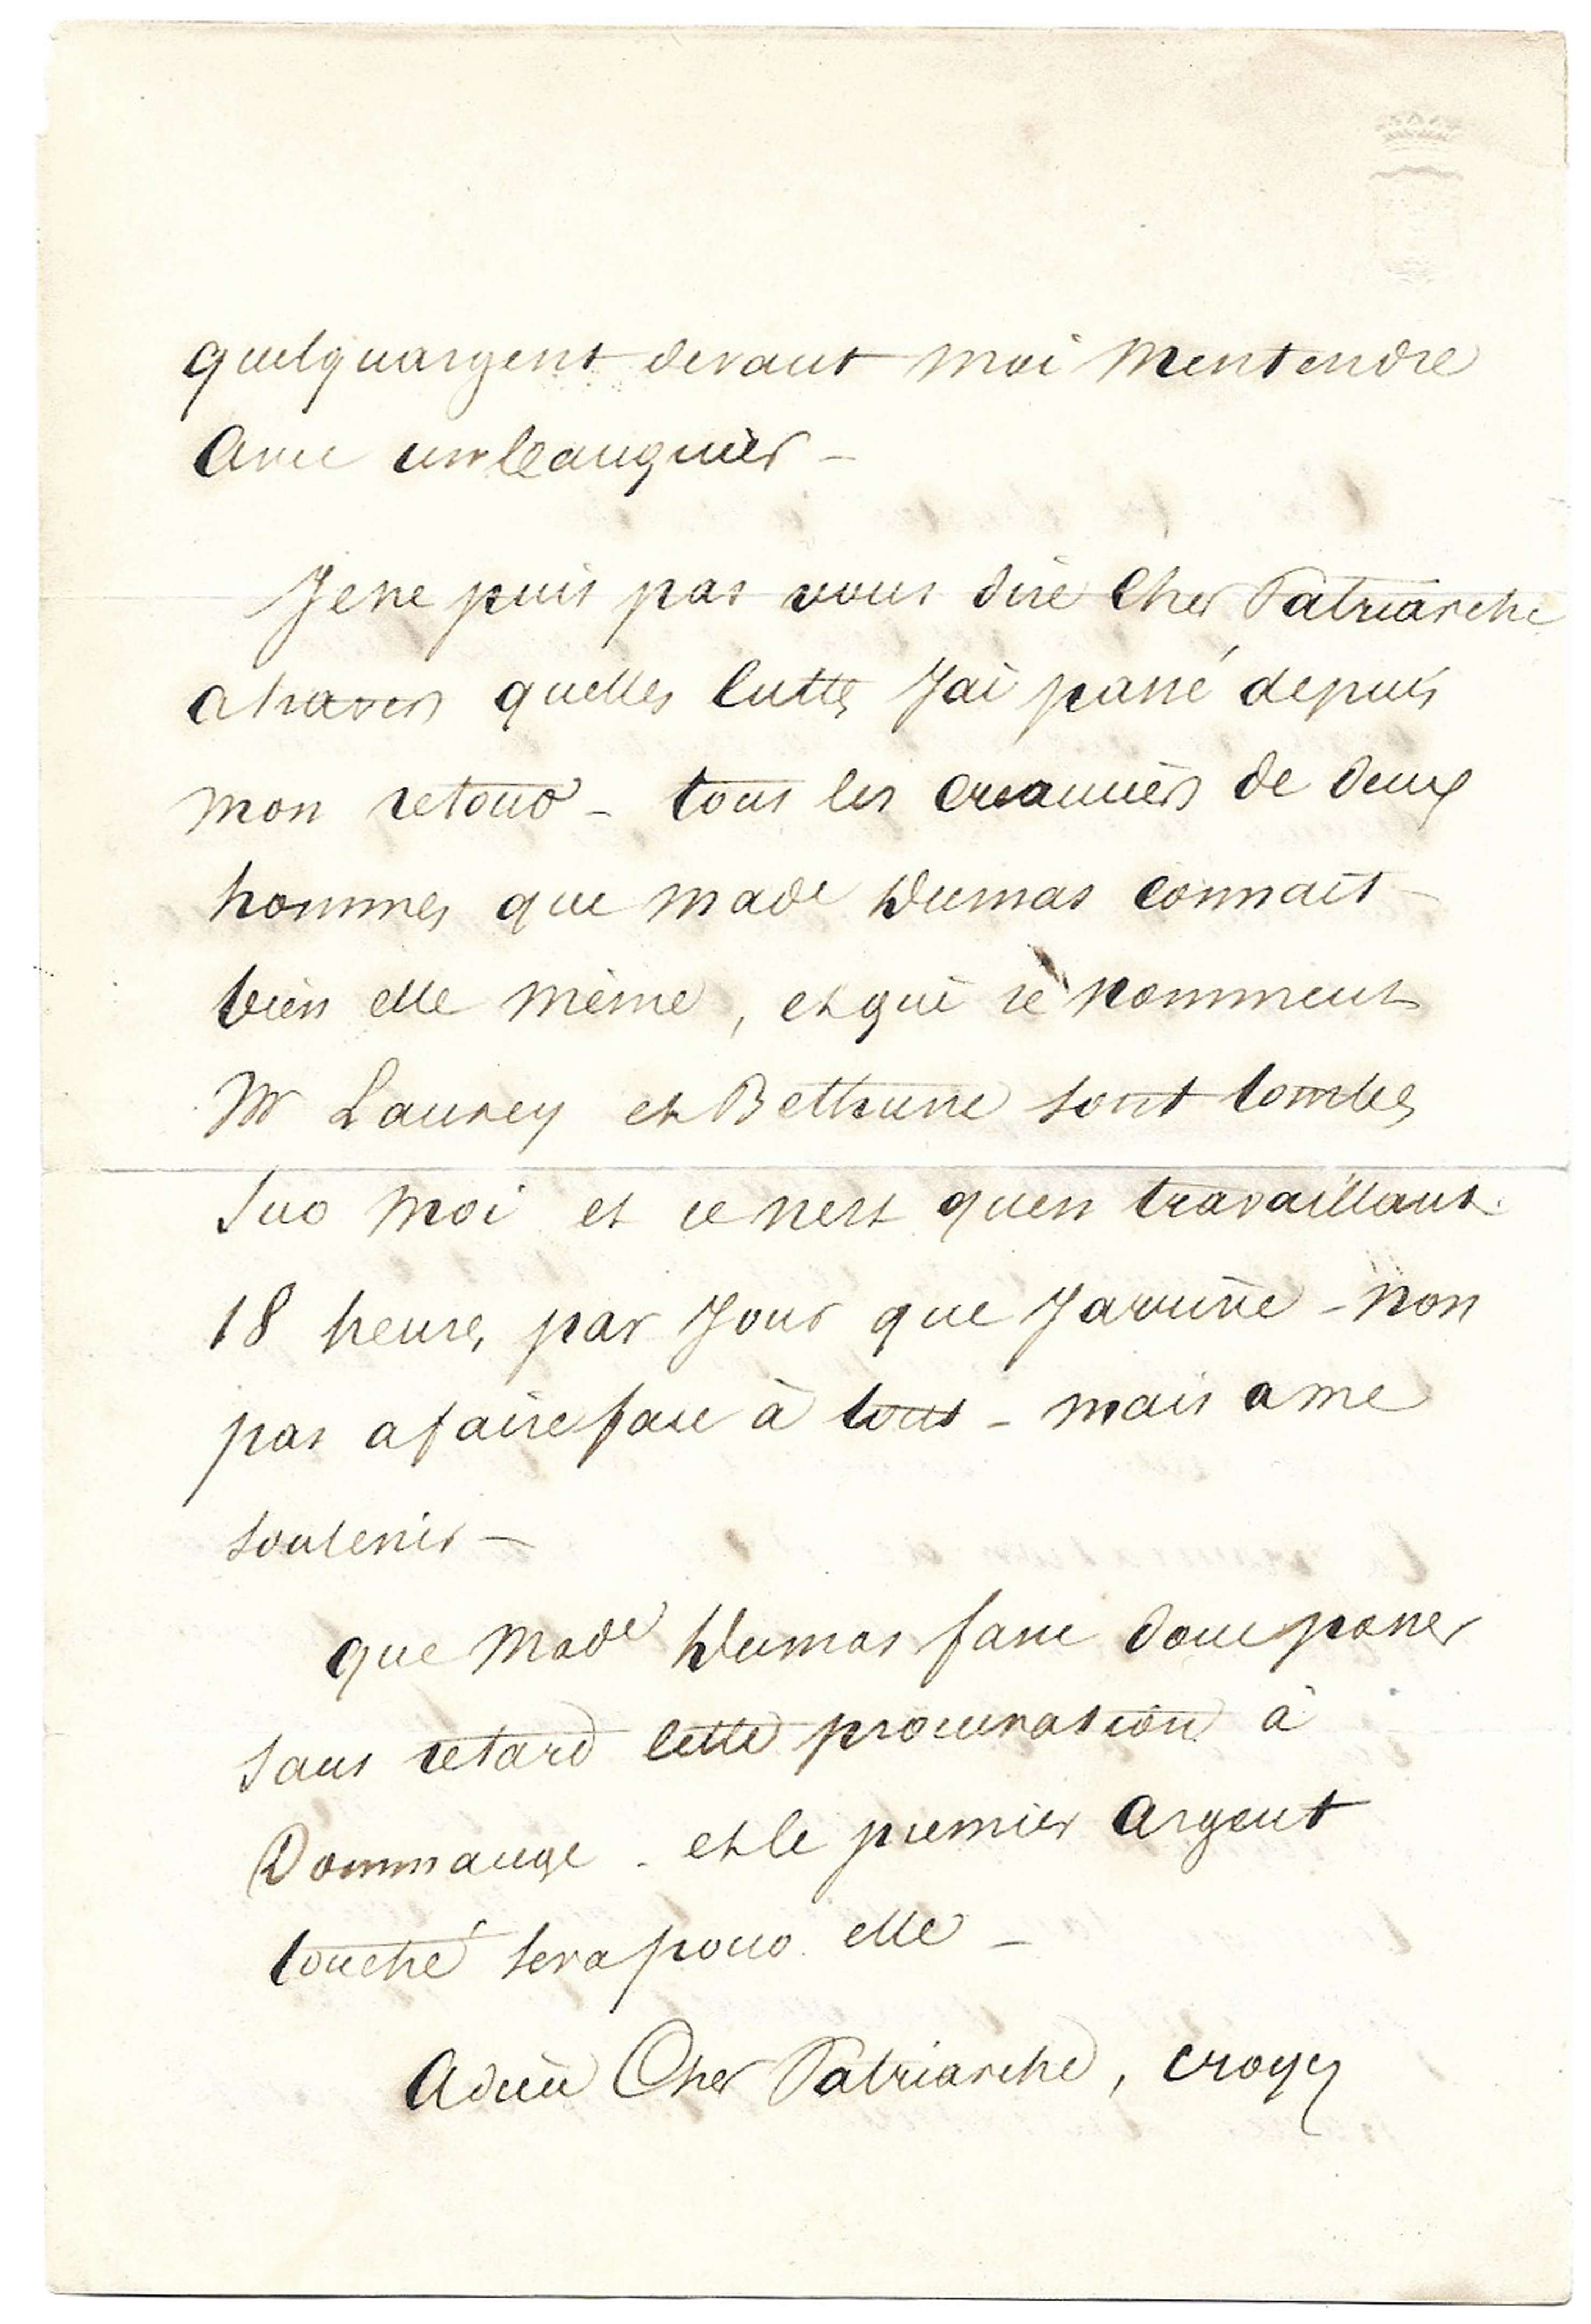 quelquargent devant moi mentendre
Avec un banquier –
Je ne puis pas vous dire Cher Patriarche
a travers quelles luttes Jai passé depuis
mon retour – tous les creanciers de deux
hommes que made Dumas connait
bien elle même, et qui se nomment
Mr Laurey et Bethune sont tombes
sur moi et ce nest quen travaillant
18 heures par Jour que Jarrive – non
pas a faire face à tout – mais a me
soutenir –
que Made Dumas fasse donc passer
sans retard cette procuration à
Dommange – et le premier argent
touché sera pour elle –
Adieu Cher Patriarche, croyez